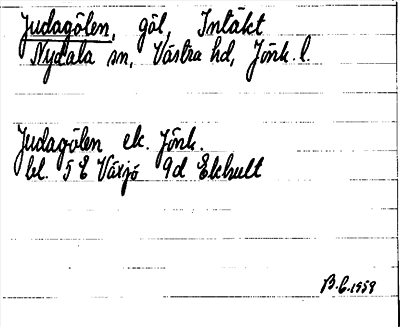 Judagölen, göl, Intäkt
Nydala sn, Västra hd, Jönk. l.
Judagölen ek. Jönk.
bl. 5 E Växjö 9d Ekhult
B.L. 1959